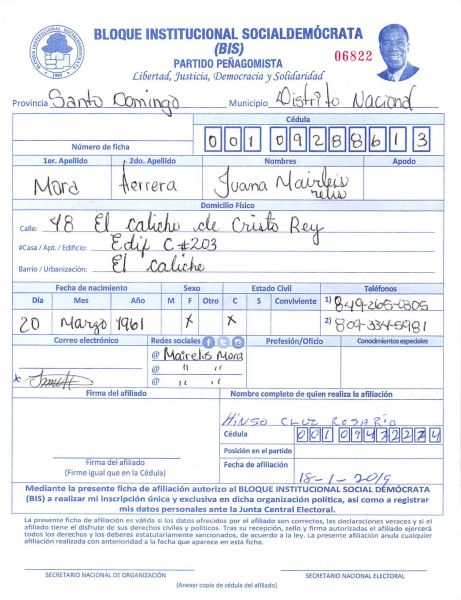 BLOQUE INSTITUCIONAL SOCIALDEMÓCRATA
(BIS)
PARTIDO PEÑAGOMISTA
Libertad, Justicia, Democracia y Solidaridad
06822
Provincia Santo Domingo Municipio Distrito Nacional
Cédula
Número de ficha 001 0928861 3
1er. Apellido 2do. Apellido Nombres Apodo
Mora Herrera Juana Maireleis
relis
Domicilio Físico
Calle: 48 El caliche de Cristo Rey
#Casa / Apt. / Edificio: Edif C #203
Barrio / Urbanización: El caliche
Fecha de nacimiento Sexo Estado Civil Teléfonos
Día Mes Año M F Otro C S Conviviente 1) 849-265-0305
20 Marzo 1961 x x 2) 809-334-5981
Correo electrónico Redes sociales Profesión/Oficio Conocimientos especiales
@ Mairelis Mora
@ " "
x @ " "
Firma del afiliado Nombre completo de quien realiza la afiliación
HINSO CRUZ ROSARIO
Cédula 001 0943223 4
Posición en el partido
Firma del afiliado
(Firme igual que en la Cédula)
Fecha de afiliación 18-1-2019
Mediante la presente ficha de afiliación autorizo al BLOQUE INSTITUCIONAL SOCIAL DEMÓCRATA
(BIS) a realizar mi inscripción única y exclusiva en dicha organización política, así como a registrar
mis datos personales ante la Junta Central Electoral.
La presente ficha de afiliación es válida si los datos ofrecidos por el afiliado son correctos, las declaraciones veraces y si el
afiliado tiene el disfrute de sus derechos civiles y políticos. Tras su recepción, sello y firma autorizadas el afiliado ejercerá
todos los derechos y los deberes estatutariamente sancionados, de acuerdo a la ley. La presente afiliación anula cualquier
afiliación realizada con anterioridad a la fecha que aparece en esta ficha.
SECRETARIO NACIONAL DE ORGANIZACIÓN SECRETARIO NACIONAL ELECTORAL
(Anexar copia de cédula del afiliado)